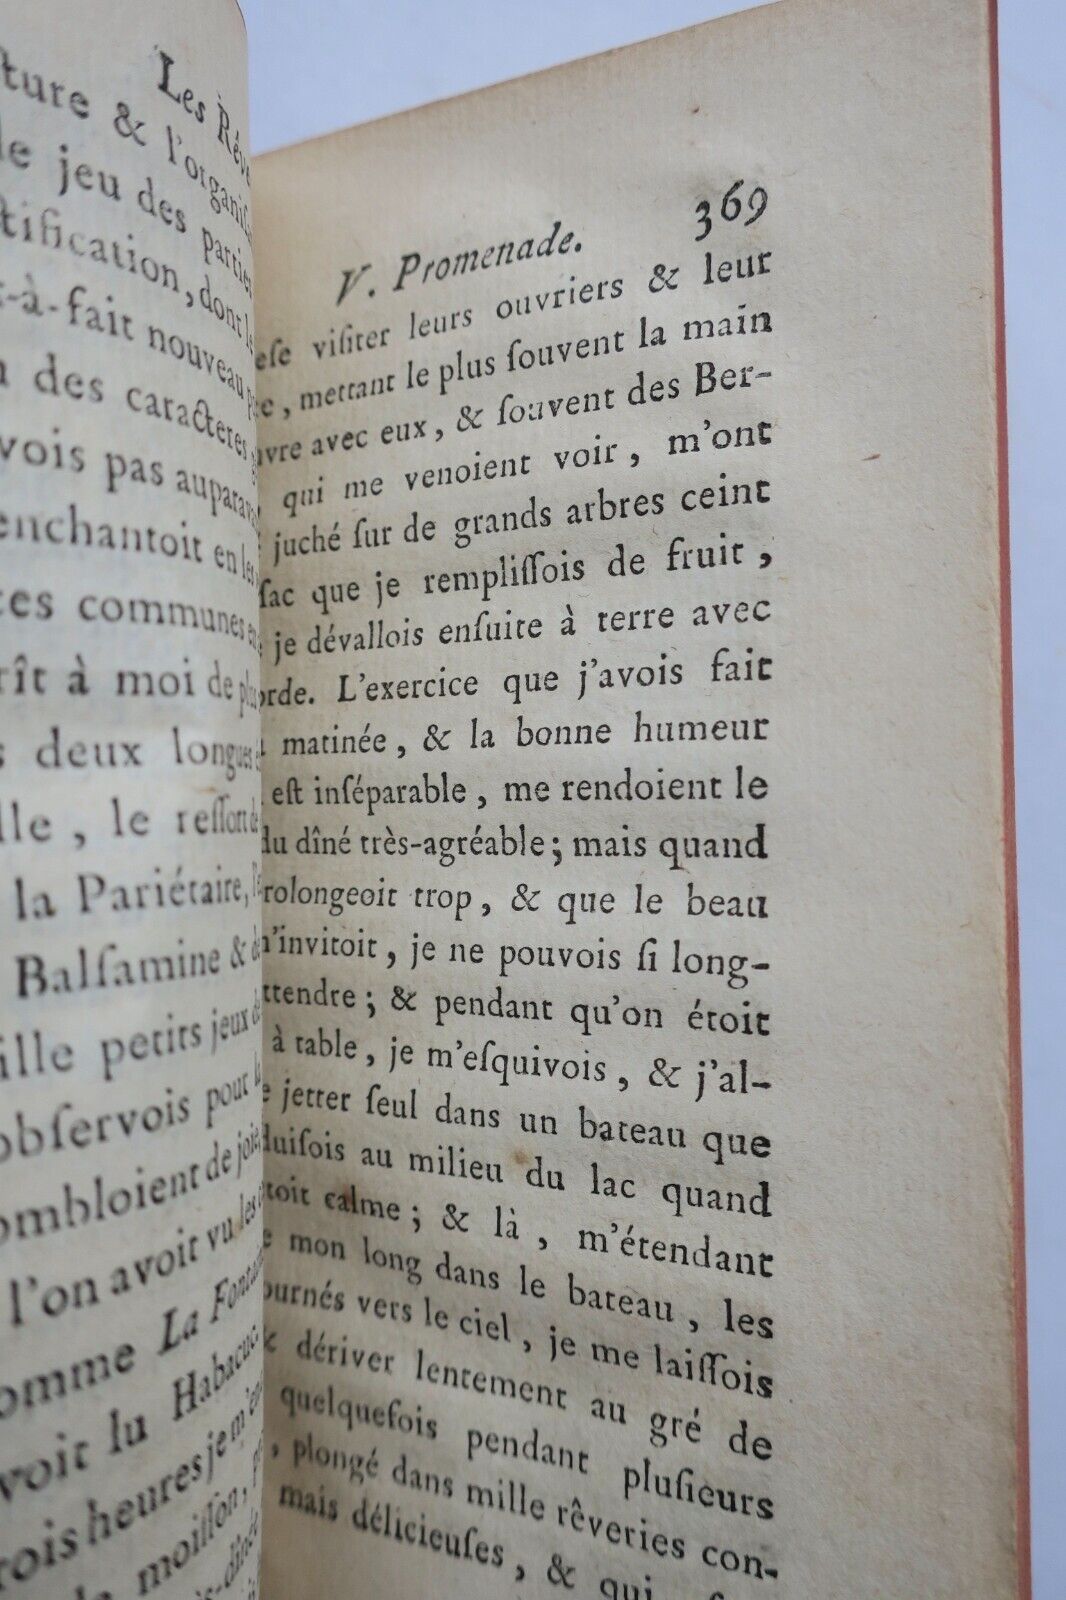 Les Rêve
ture & l'organiſ
le jeu des partie
tification, dont le
t-à-fait nouveau
des caracteres
vois pas auparava
enchantoit en les
ces communes
rît à moi de plus
s deux longues
lle, le reſſort de
la Pariétaire,
Balſamine &
ille petits jeux de
obſervois pour la
ombloient de joie
l'on avoit vu les
omme La Fontain
voit lu Habacuc.
rois heures je m'en
moiſſon,
V. Promenade. 369
eſe viſiter leurs ouvriers & leur
e, mettant le plus ſouvent la main
vre avec eux, & ſouvent des Ber-
qui me venoient voir, m'ont
juché ſur de grands arbres ceint
ſac que je rempliſſois de fruit,
je dévallois enſuite à terre avec
orde. L'exercice que j'avois fait
matinée, & la bonne humeur
eſt inſéparable, me rendoient le
du dîné très-agréable; mais quand
rolongeoit trop, & que le beau
m'invitoit, je ne pouvois ſi long-
ttendre; & pendant qu'on étoit
à table, je m'eſquivois, & j'al-
e jetter ſeul dans un bateau que
duiſois au milieu du lac quand
toit calme; & là, m'étendant
e mon long dans le bateau, les
ournés vers le ciel, je me laiſſois
& dériver lentement au gré de
quelquefois pendant pluſieurs
, plongé dans mille rêveries con-
mais délicieuſes, & qui